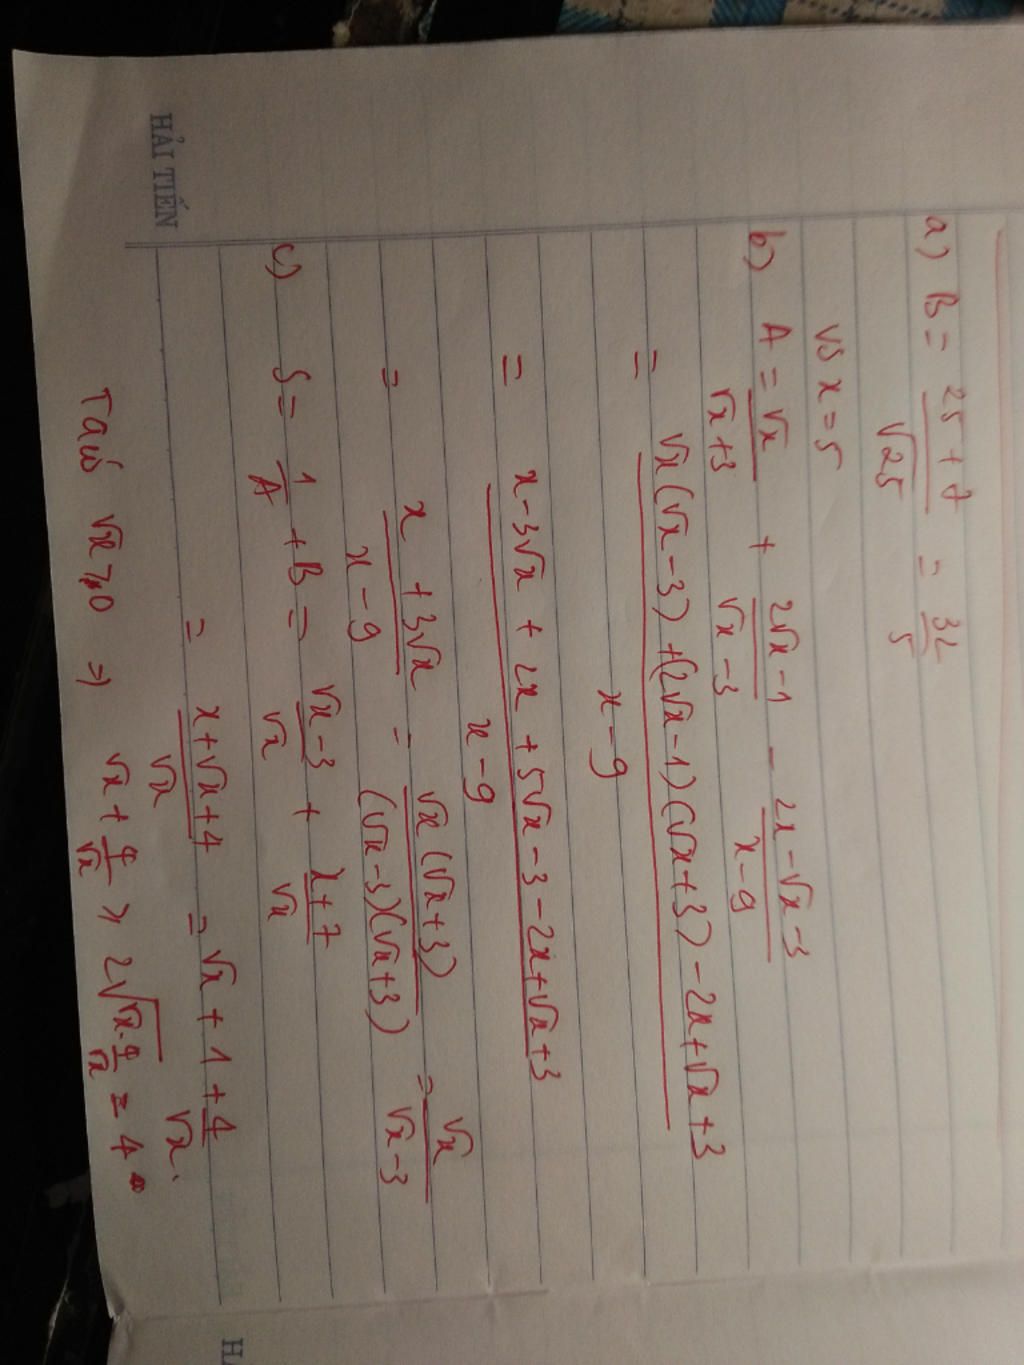 HẢI TIẾN
a) B = \frac{25+7}{\sqrt{25}} = \frac{32}{5}
vs x = 5
b) A = \frac{\sqrt{x}}{\sqrt{x}+3} + \frac{2\sqrt{x}-1}{\sqrt{x}-3} - \frac{2x-\sqrt{x}-3}{x-9}
= \frac{\sqrt{x}(\sqrt{x}-3)+(2\sqrt{x}-1)(\sqrt{x}+3)-2x+\sqrt{x}+3}{x-9}
= \frac{x-3\sqrt{x}+2x+5\sqrt{x}-3-2x+\sqrt{x}+3}{x-9}
= \frac{x+3\sqrt{x}}{x-9} = \frac{\sqrt{x}(\sqrt{x}+3)}{(\sqrt{x}-3)(\sqrt{x}+3)} = \frac{\sqrt{x}}{\sqrt{x}-3}
c) S = \frac{1}{A} + B = \frac{\sqrt{x}-3}{\sqrt{x}} + \frac{x+7}{\sqrt{x}}
= \frac{x+\sqrt{x}+4}{\sqrt{x}} = \sqrt{x} + 1 + \frac{4}{\sqrt{x}}.
Ta có \sqrt{x} ≥ 0 => \sqrt{x} + \frac{4}{\sqrt{x}} ≥ 2\sqrt{\sqrt{x}.\frac{4}{\sqrt{x}}} = 4